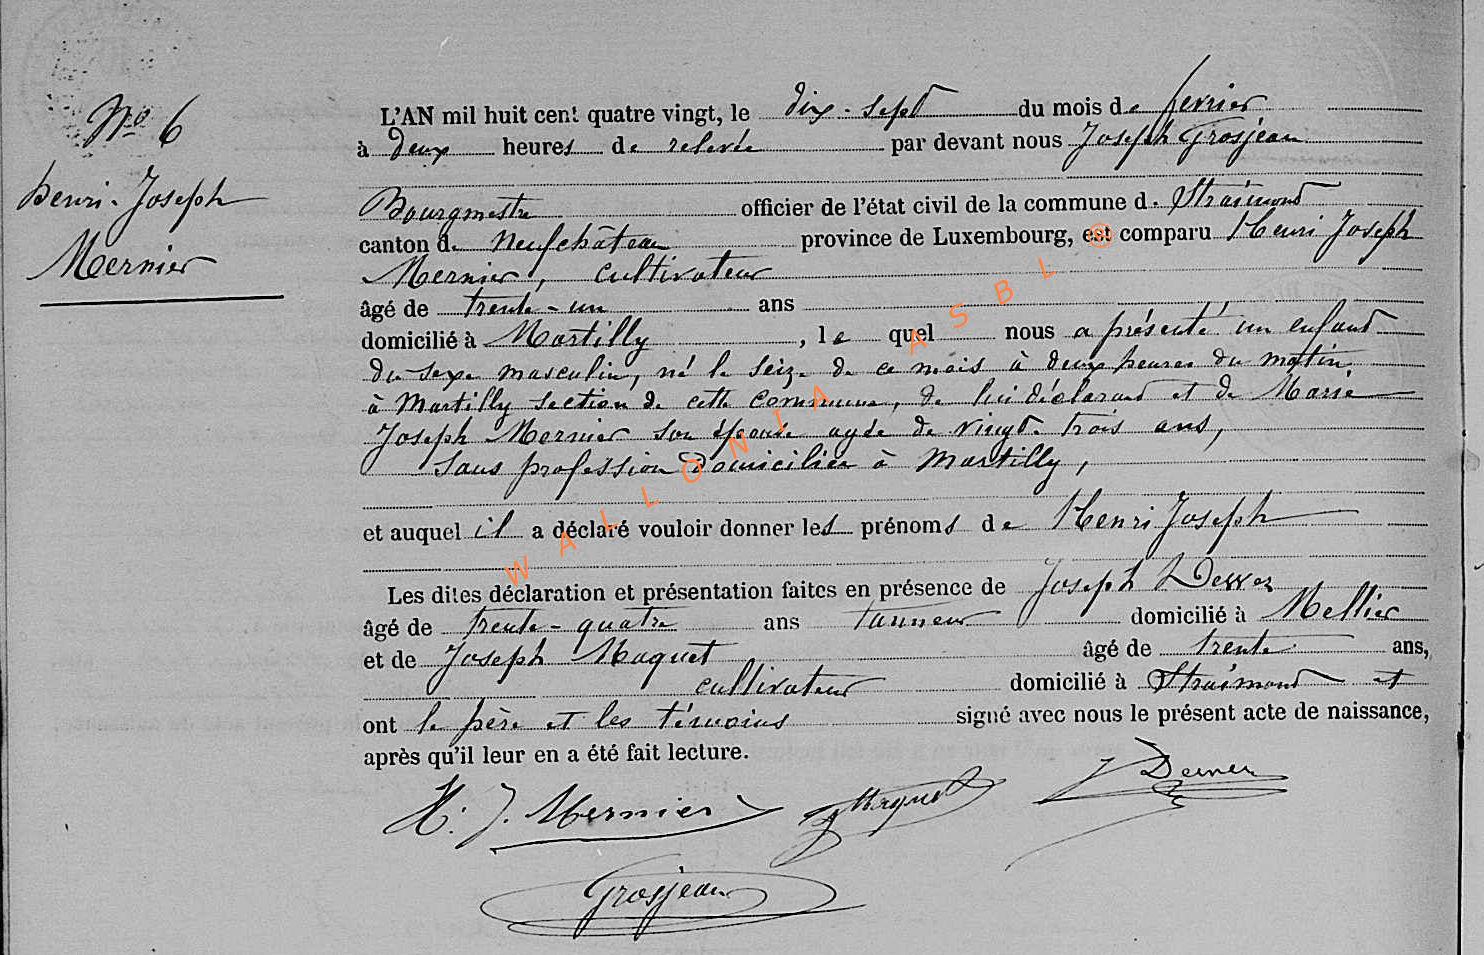 Nº 6
Henri-Joseph
Mernier
L'AN mil huit cent quatre vingt, le dix-sept du mois de fevrier
à deux heures de relevée par devant nous Joseph Grosjean
Bourgmestre officier de l'état civil de la commune de Straimont
canton de Neufchâteau province de Luxembourg, est comparu Henri Joseph
Mernier, cultivateur
âgé de trente-un ans
domicilié à Martilly, le quel nous a présenté un enfant
du sexe masculin, né le seize de ce mois à deux heures du matin
à Martilly section de cette commune, de lui déclarant et de Marie
Joseph Mernier son épouse agée de vingt-trois ans,
sans profession domiciliée à Martilly,
et auquel il a déclaré vouloir donner les prénoms de Henri Joseph
Les dites déclaration et présentation faites en présence de Joseph
âgé de trente-quatre ans tanneur domicilié à Mellier
et de Joseph Maquet âgé de trente ans,
cultivateur domicilié à Straimont et
ont le père et les témoins signé avec nous le présent acte de naissance,
après qu'il leur en a été fait lecture.
H. J. Mernier J Maquet J
Grosjean
WALLONIA ASBL ®